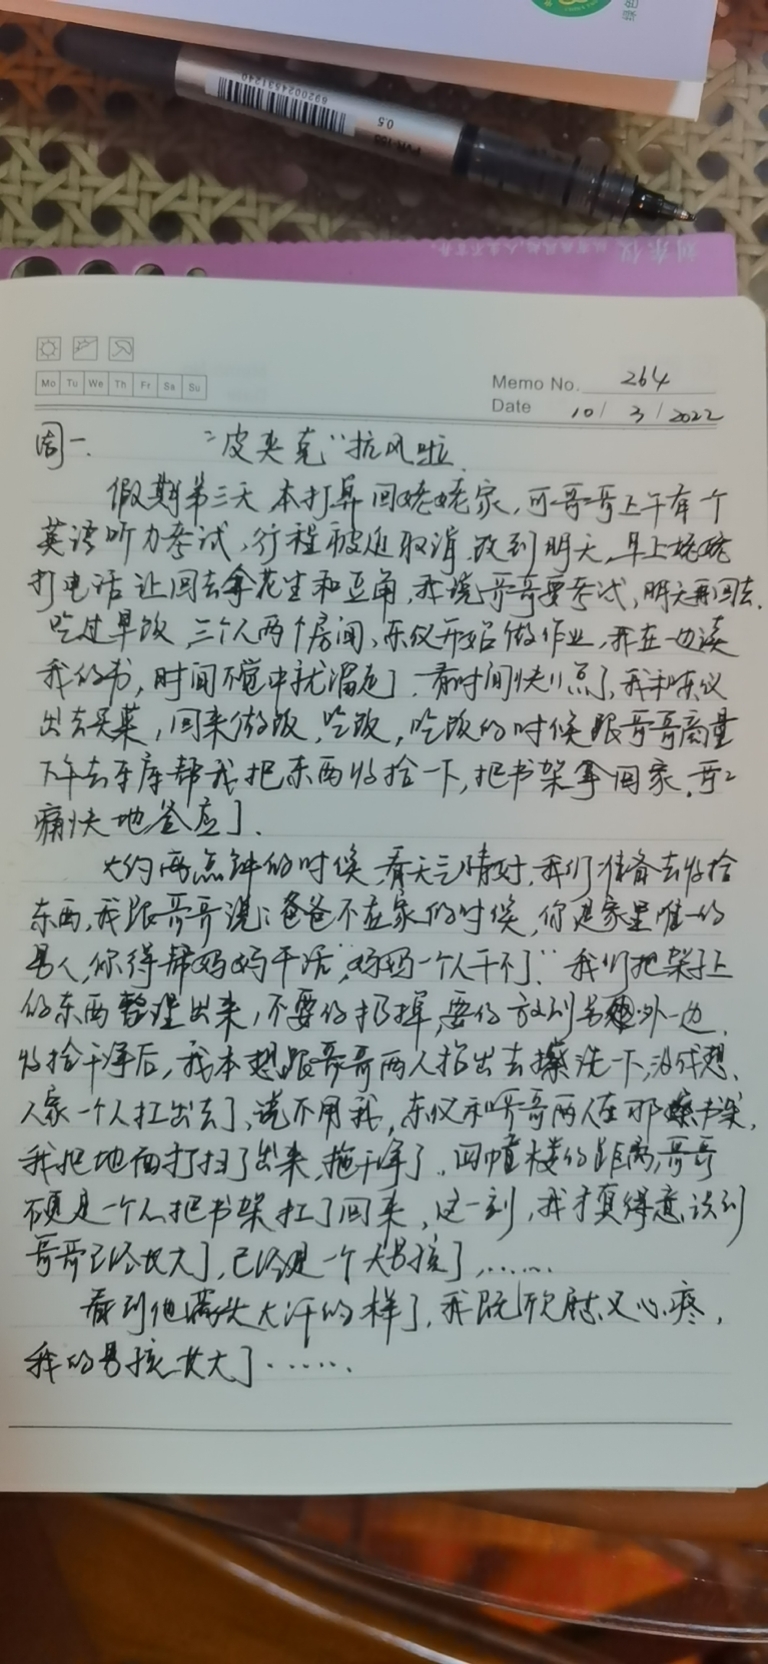 6920024531240
PVR-155
0.5
刘东仪
Mo Tu We Th Fr Sa Su
Memo No. 264
Date 10/3/2022
周一. "皮夹克"抗风啦
假期第三天,本打算回姥姥家,可哥哥上午有个
英语听力考试,行程被迫取消,改到明天,早上姥姥
打电话让回去拿花生和豆角,我说哥哥要考试,明天再回去.
吃过早饭,三个人两个房间,东仪开始做作业,我在一边读
我的书,时间不觉中就溜走了.看时间快11点了,我和东仪
出去买菜,回来做饭,吃饭,吃饭的时候跟哥哥商量
下午去车库帮我把东西收拾一下,把书架拿回家.哥哥
痛快地答应了.
大约两点钟的时候,看天气晴好,我们准备去收拾
东西,我跟哥哥说:爸爸不在家的时候,你是家里唯一的
男人,你得帮妈妈干活,妈妈一个人干不了."我们把架子上
的东西整理出来,不要的扔掉,要的放到另外一边.
收拾干净后,我本想跟哥哥两人抬出去擦洗一下,没成想,
人家一个人扛出去了,说不用我,东仪和哥哥两人在那擦书架,
我把地面打扫了出来,拖干净了.四幢楼的距离,哥哥
硬是一个人把书架扛了回来,这一刻,我才真得意识到
哥哥已经长大了,已经是一个大男孩了……
看到他满头大汗的样子,我既欣慰又心疼,
我的男孩长大了……